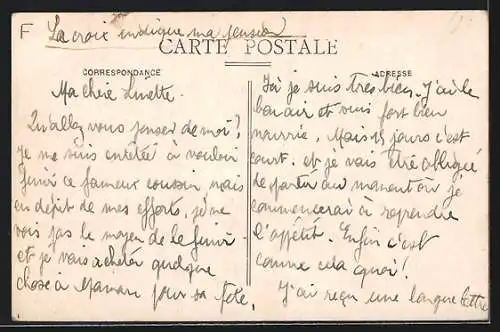 F La croix indique ma pension
CARTE POSTALE
CORRESPONDANCE
ADRESSE
Ma chère Linette.
Qu'allez vous penser de moi?
Je me suis entêtée à vouloir
finir ce fameux coussin, mais
en dépit de mes efforts, je ne
vois pas le moyen de le finir
et je vais acheter quelque
chose à Maman pour sa fête.
Ici je suis très bien. J'ai le
bon air et suis fort bien
nourrie. Mais 15 jours c'est
court. et je vais être obligée
de partir au moment où je
commencerai à reprendre
l'appétit. Enfin c'est
comme cela quoi!
J'ai reçu une longue lettre